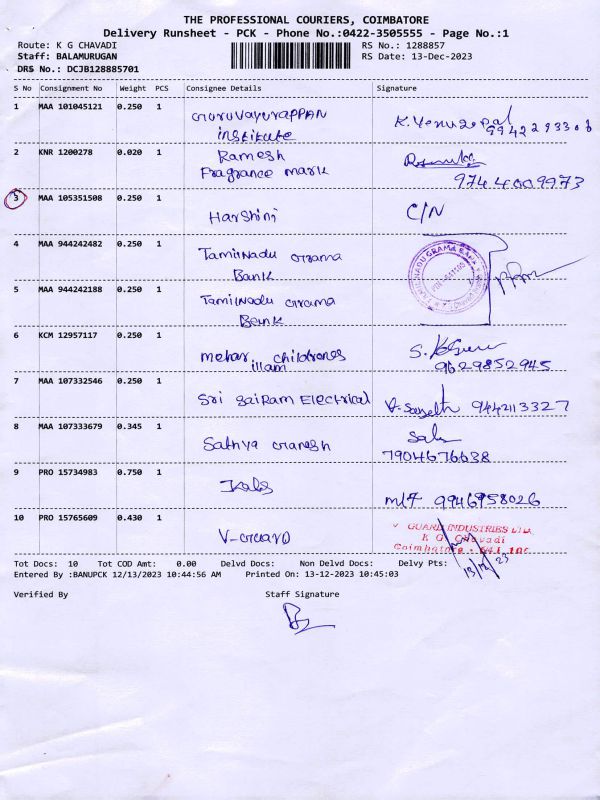 THE PROFESSIONAL COURIERS, COIMBATORE
Delivery Runsheet - PCK - Phone No.:0422-3505555 - Page No.:1
Route: K G CHAVADI RS No.: 1288857
Staff: BALAMURUGAN RS Date: 13-Dec-2023
DRS No.: DCJB128885701
S No Consignment No Weight PCS Consignee Details Signature
1 MAA 101045121 0.250 1 Guruvayurappan K. Venugopal
institute 9942293308
2 KNR 1200278 0.020 1 Ramesh
Fragrance mark 9744009973
3 MAA 105351508 0.250 1 Harshini C/N
4 MAA 944242482 0.250 1 Tamilnadu Grama
Bank
TAMILNADU GRAMA BANK
5 MAA 944242188 0.250 1 Tamilnadu Grama
Bank
6 KCM 12957117 0.250 1 mehar childrones
illam 9629852945
7 MAA 107332546 0.250 1 Sri Sairam Electrical 9442113327
8 MAA 107333679 0.345 1 Sathya Ganesh
7904676638
9 PRO 15734983 0.750 1 9946958026
10 PRO 15765609 0.430 1 V-Guard
V GUARD INDUSTRIES LTD.
K G Chavadi
Coimbatore - 641 105
13/12/23
Tot Docs: 10 Tot COD Amt: 0.00 Delvd Docs: Non Delvd Docs: Delvy Pts:
Entered By :BANUPCK 12/13/2023 10:44:56 AM Printed On: 13-12-2023 10:45:03
Verified By Staff Signature